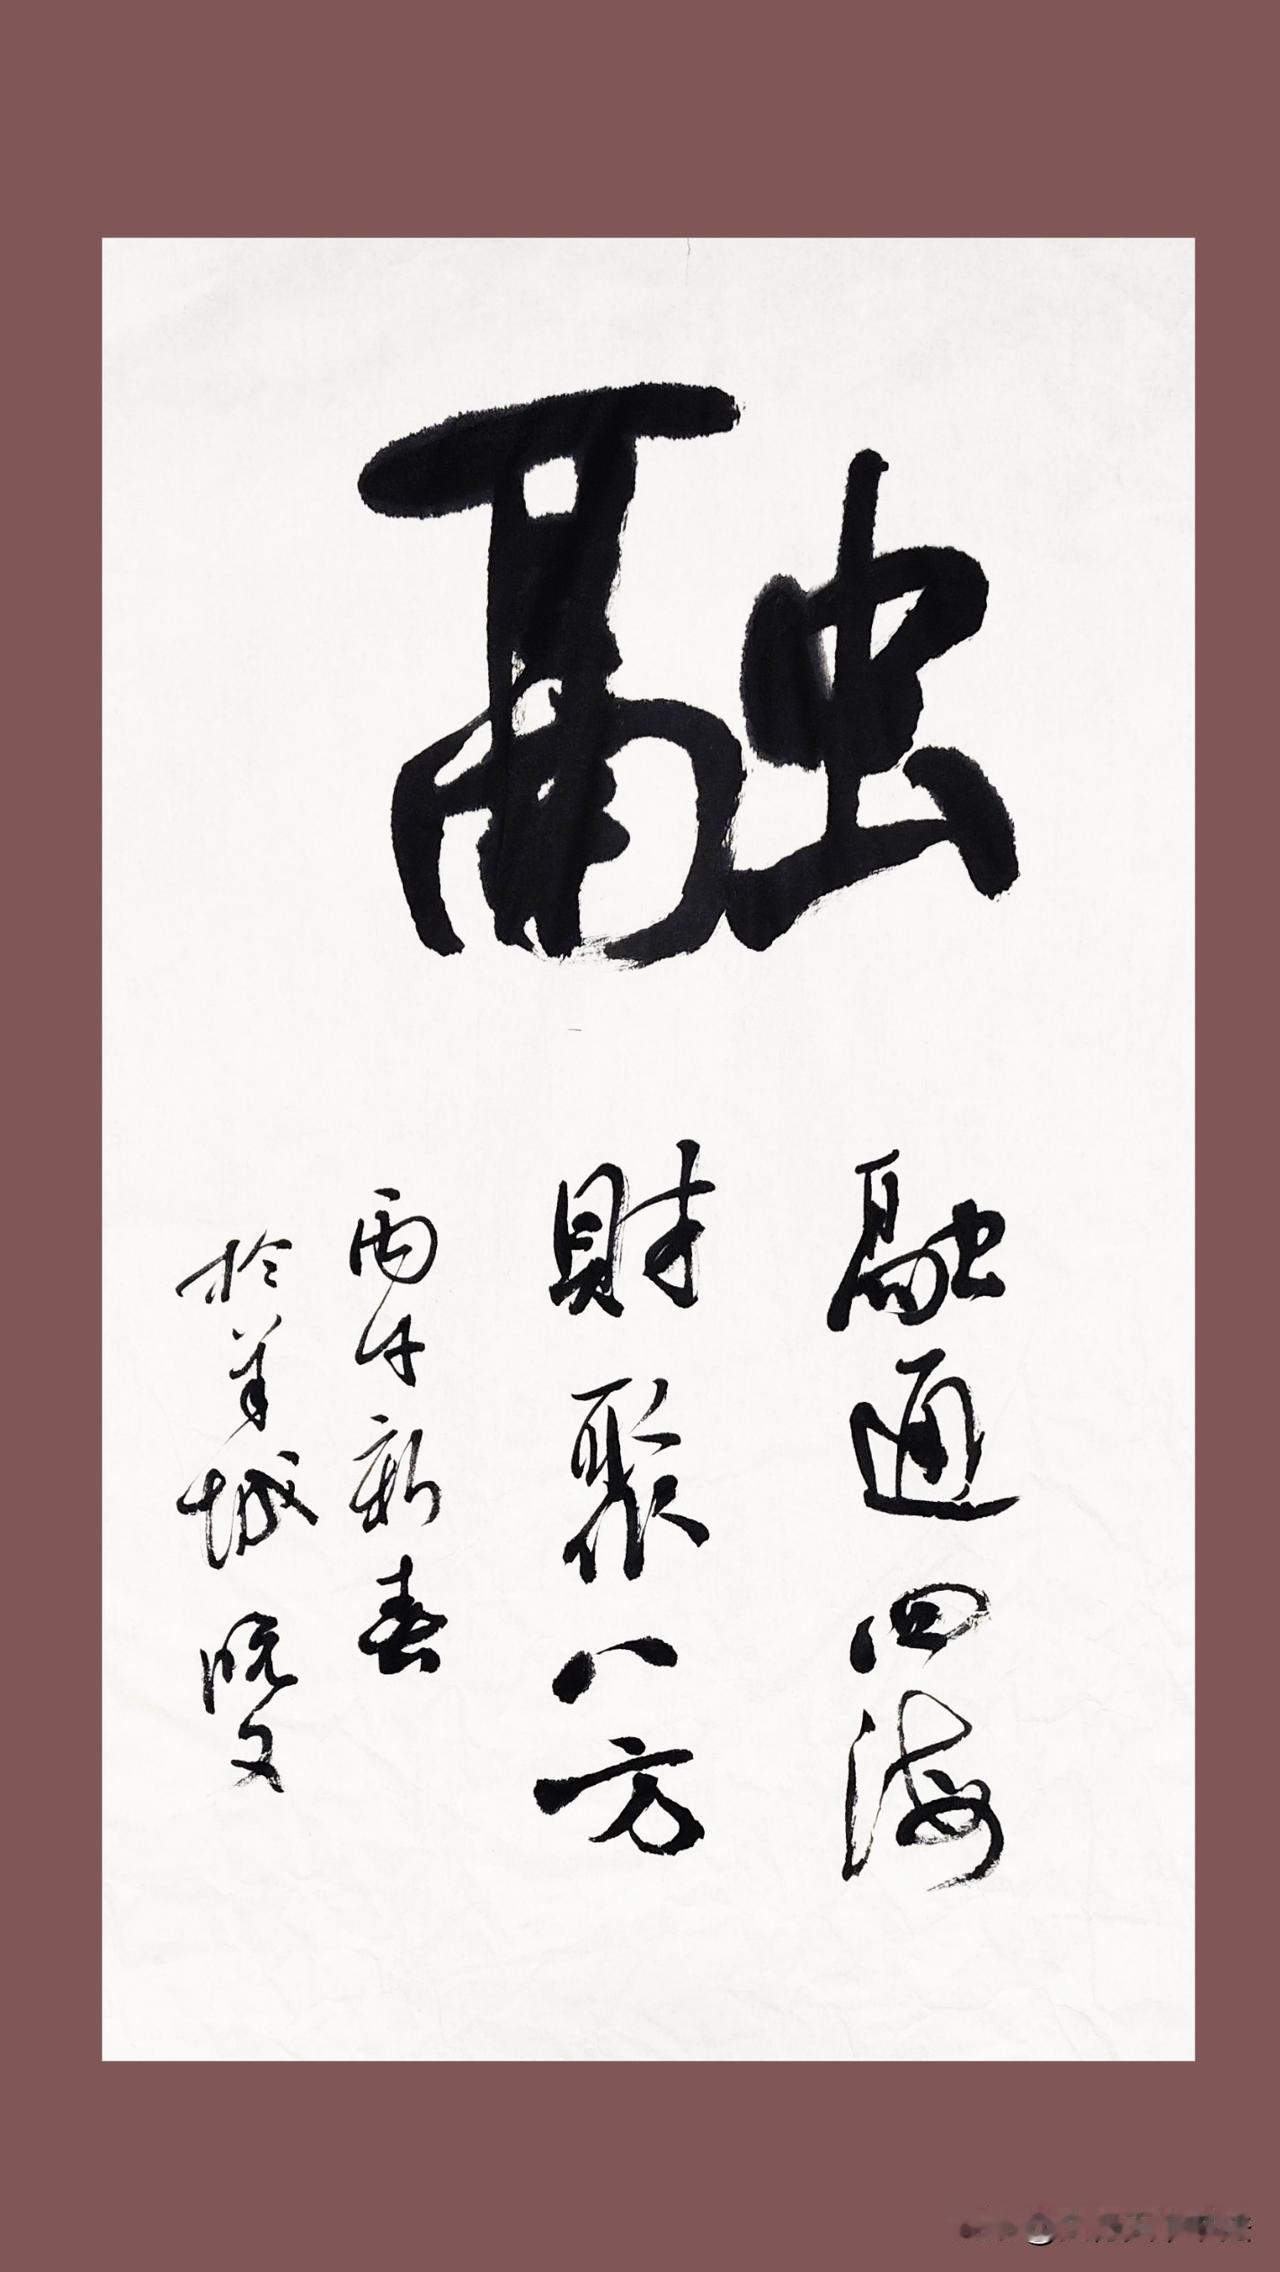 融
融通四海
財聚八方
丙午新春
於羊城 晓文